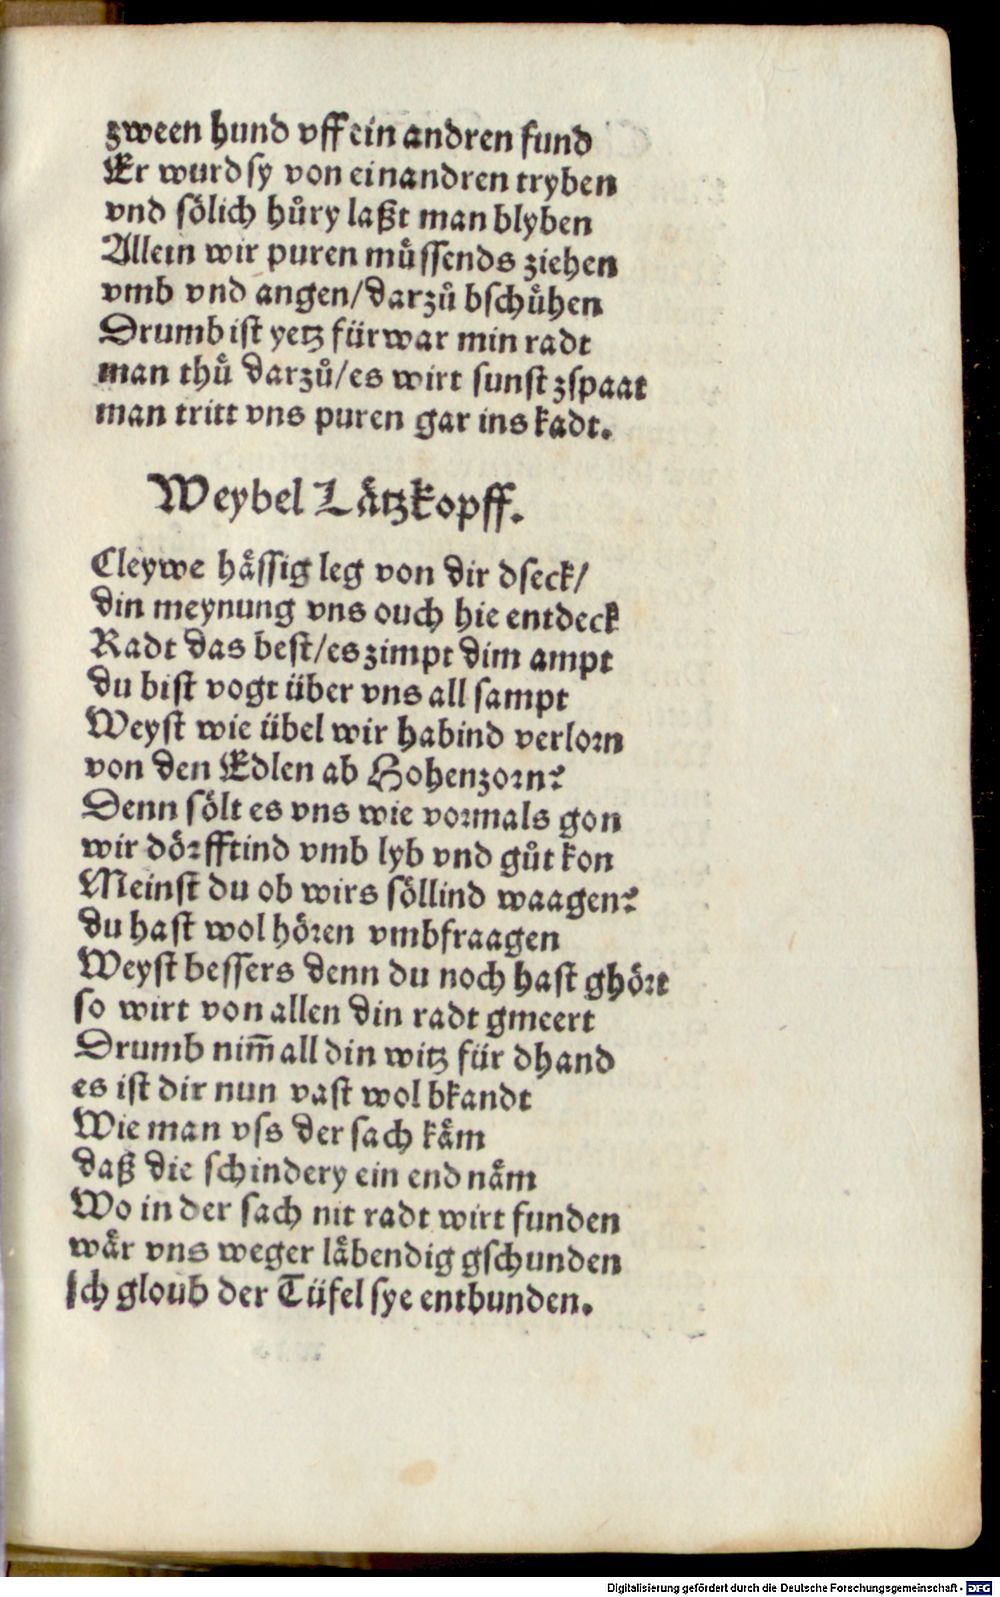 zween hund vff ein andren fund
Er wurd sy von einandren tryben
vnd sölich hůry laßt man blyben
Allein wir puren müssends ziehen
vmb vnd angen/darzů bschůhen
Drumb ist yetz fürwar min radt
man thů darzů/es wirt sunst zspaat
man tritt vns puren gar ins kadt.
Weybel Lätzkopff.
Cleywe hässig leg von dir dseck/
din meynung vns ouch hie entdeck
Radt das best/es zimpt dim ampt
du bist vogt über vns all sampt
Weyst wie übel wir habind verlorn
von den Edlen ab Hohenzorn?
Denn sölt es vns wie vormals gon
wir dörfftind vmb lyb vnd gůt kon
Meinst du ob wirs söllind waagen?
du hast wol hören vmbfraagen
Weyst bessers denn du noch hast ghört
so wirt von allen din radt gmeert
Drumb nim̄ all din witz für dhand
es ist dir nun vast wol bkandt
Wie man vss der sach käm
daß die schindery ein end näm
Wo in der sach nit radt wirt funden
wär vns weger läbendig gschunden
Ich gloub der Tüfel sye entbunden.
Digitalisierung gefördert durch die Deutsche Forschungsgemeinschaft - DFG